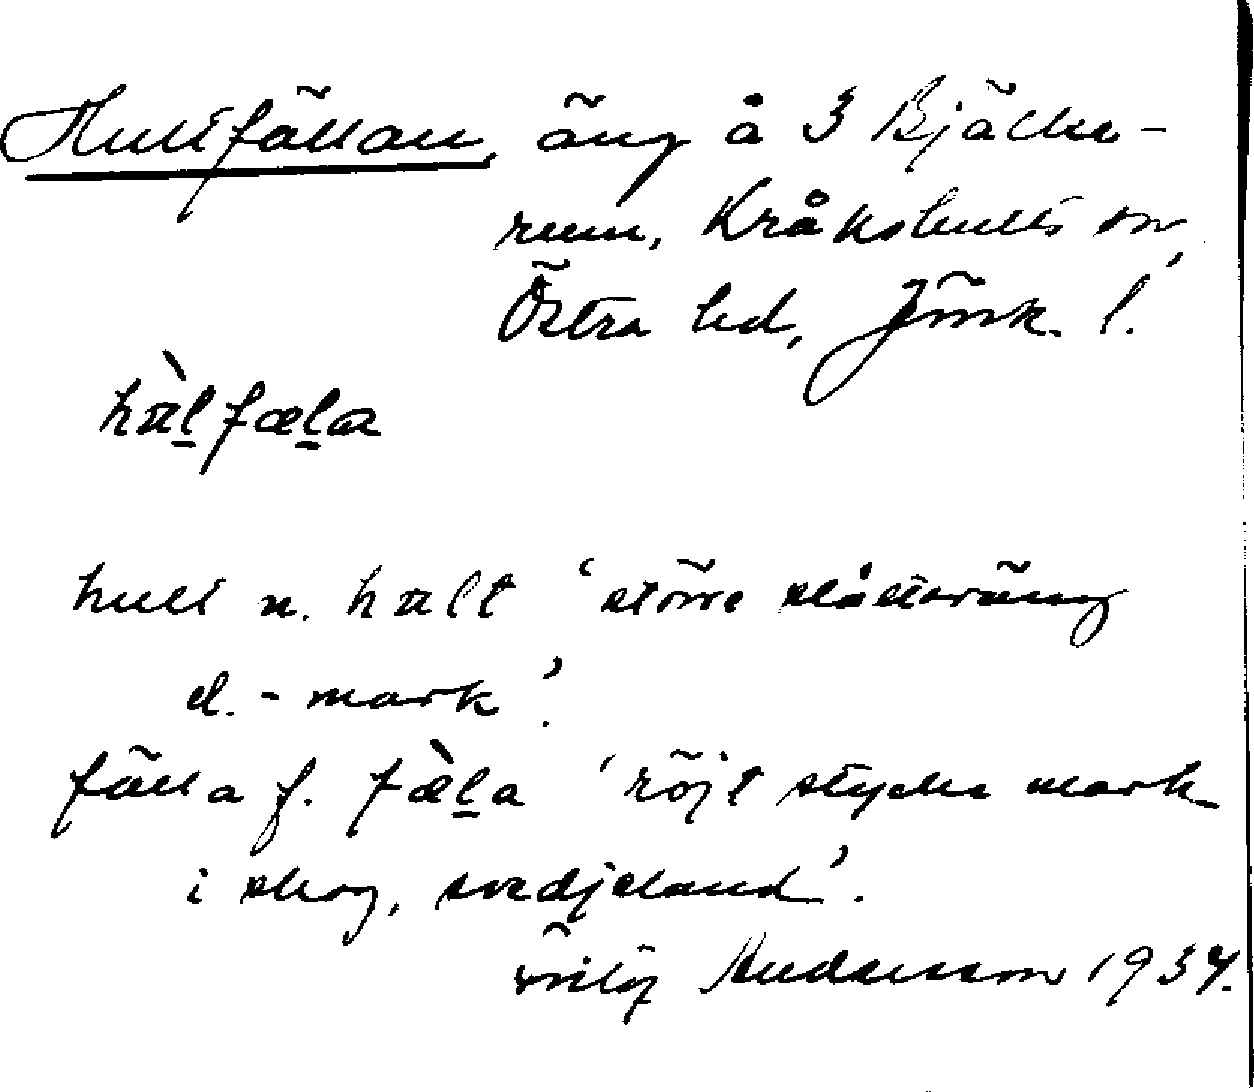 Hultfällan, äng å 3 Bjälke-
rum, Kråkshults sn,
Östra hd, Jönk. l.
hult n. 'större slåtteräng
el. -mark'.
fälla f. fæ̀l̠a 'röjt stycke mark
i skog, svedjeland'.
Andersson 1934.